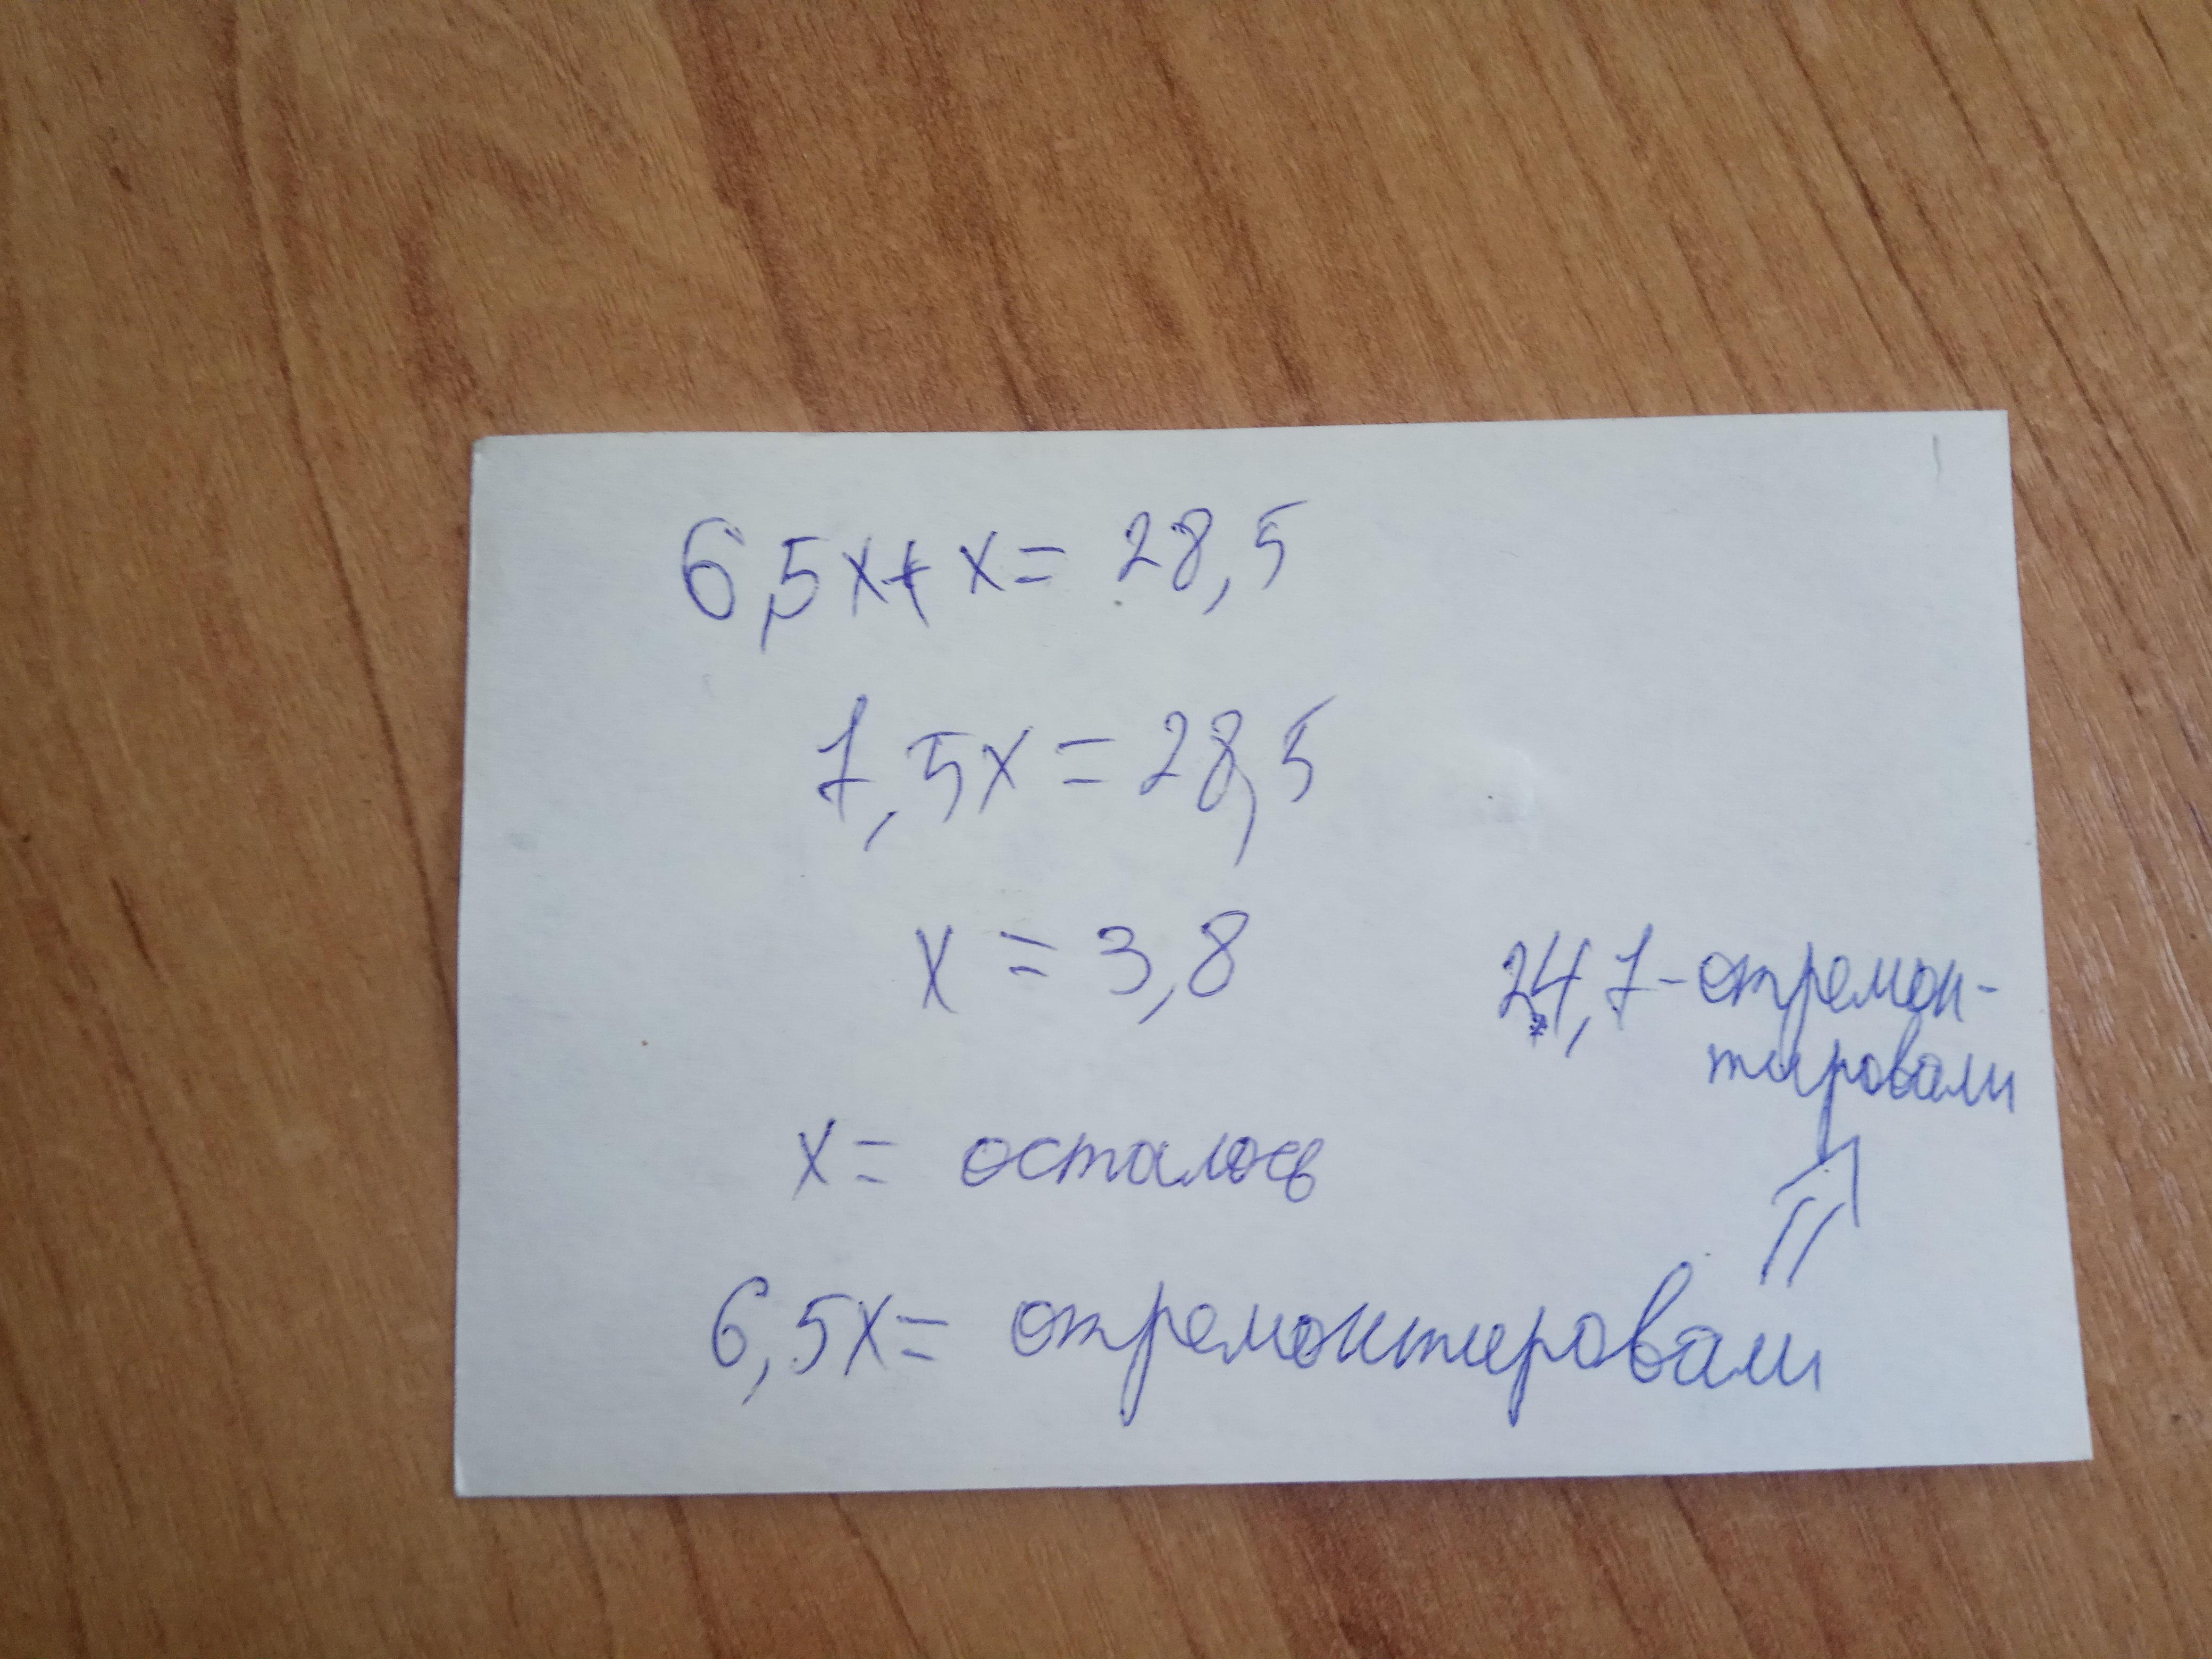 6,5x + x = 28,5
7,5x = 28,5
x = 3,8
24,7 - отремон-
тировали
x = осталось
6,5x = отремонтировали